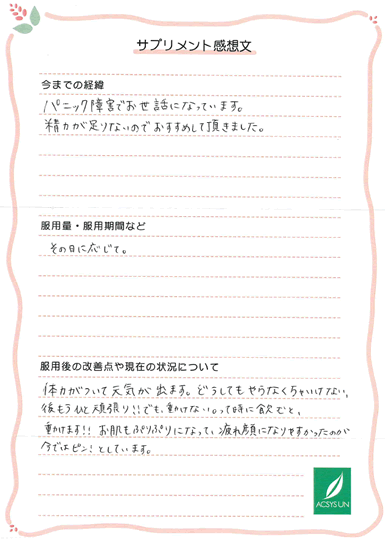 サプリメント感想文
今までの経緯
パニック障害でお世話になっています。
精力が足りないのでおすすめして頂きました。
服用量・服用期間など
その日に応じて。
服用後の改善点や現在の状況について
体力がついて元気が出ます。どうしてもやらなくちゃいけない、
後もうひと頑張り!!でも、動けない。って時に飲むと、
動けます!! お肌もぷりぷりになって、疲れ顔になりやすかったのが
今ではピン!としています。
ACSYSUN